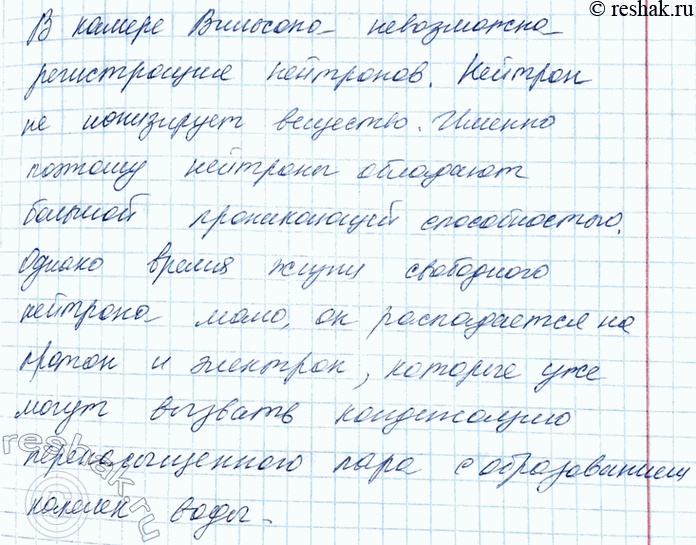 © reshak.ru
В камере Вильсона невозможна
регистрация нейтронов. Нейтрон
не ионизирует вещество. Именно
поэтому нейтроны обладают
большой проникающей способностью.
Однако время жизни свободного
нейтрона мало, он распадается на
протон и электрон, которые уже
могут вызвать конденсацию
перенасыщенного пара с образованием
капелек воды.
reshak.ru